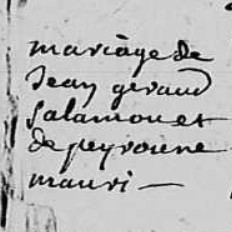 mariage de
Jean geraud
salamon et
de peyronne
mauri —